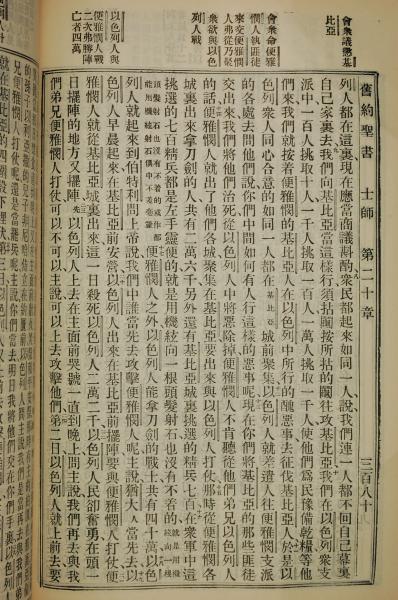 會眾議懲基
比亞
會眾命便雅
憫人執匪徒
來交便雅憫
人弗從乃聚
眾欲與以色
列人戰
以色列人與
便雅憫人戰
二次弗勝陣
亡者四萬
舊約聖書 士師 第二十章 三百八十
列人都在這裏現在應當商議斟酌眾民都起來如同一人說我們連一人都不回自己幕裏
自己家裏去我們向基比亞當這樣行須拈鬮按所拈的鬮往攻基比亞我們在以色列眾支
派中一百人挑取十人一千人挑取一百人一萬人挑取一千人使他們為民豫備乾糧等他
們來我們就按着便雅憫的基比亞人在以色列中所行的醜惡事去征伐基比亞人於是以
色列眾人同心合意的如同一人都在基比亞城前聚集以色列人就差遣人往便雅憫支派
的各處去問他們說你們中間如何有人行這樣的惡事呢現在你們將基比亞的那些匪徒
交出來我們將他們治死從以色列人中將惡除掉便雅憫人不肯聽從他們弟兄以色列人
的話便雅憫人就出了他們各城聚集在基比亞要出來與以色列人打仗那時從便雅憫各
城裏出來拿刀劍的人共有二萬六千另外還有基比亞城裏挑選的精兵七百在眾軍中這
挑選的七百精兵都是左手靈便的就是用機絃向一根頭髮射石也沒有不着的
便雅憫人之外以色列人能拿刀劍的戰士共有四十萬以色
列人就起來到伯特利問上帝說我們中誰當先去攻擊便雅憫人呢主說猶大人當先去以
色列人早晨起來在基比亞前安營以色列人出來在基比亞前擺陣要與便雅憫人打仗便
雅憫人就從基比亞城裏出來這一日殺死以色列人二萬二千以色列人民卻奮勇在頭一
日擺陣的地方又擺陣先以色列人上去在主面前哭號一直到晚上問主說我們再去與我
們弟兄便雅憫人打仗可以不可以主說可以上去攻擊他們第二日以色列人就上前去要